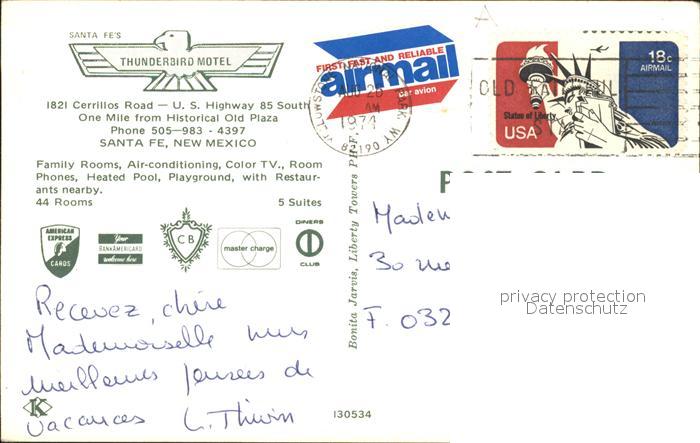 SANTA FE'S
THUNDERBIRD MOTEL
1821 Cerrillos Road — U. S. Highway 85 South
One Mile from Historical Old Plaza
Phone 505—983 - 4397
SANTA FE, NEW MEXICO
Family Rooms, Air-conditioning, Color TV., Room
Phones, Heated Pool, Playground, with Restaur-
ants nearby.
44 Rooms 5 Suites
AMERICAN EXPRESS CARDS
Your BANKAMERICARD welcome here
CB
master charge
DINERS CLUB
Recevez, chère
Mademoiselle mes
meilleures pensées de
vacances
K
130534
Bonita Jarvis, Liberty Towers
FIRST, FAST AND RELIABLE
airmail
par avion
AUG 26
AM
1974
WY
82190
OLD
18c
AIRMAIL
Statue of Liberty
USA
POST CARD
Madem
30
F. 032
privacy protection
Datenschutz